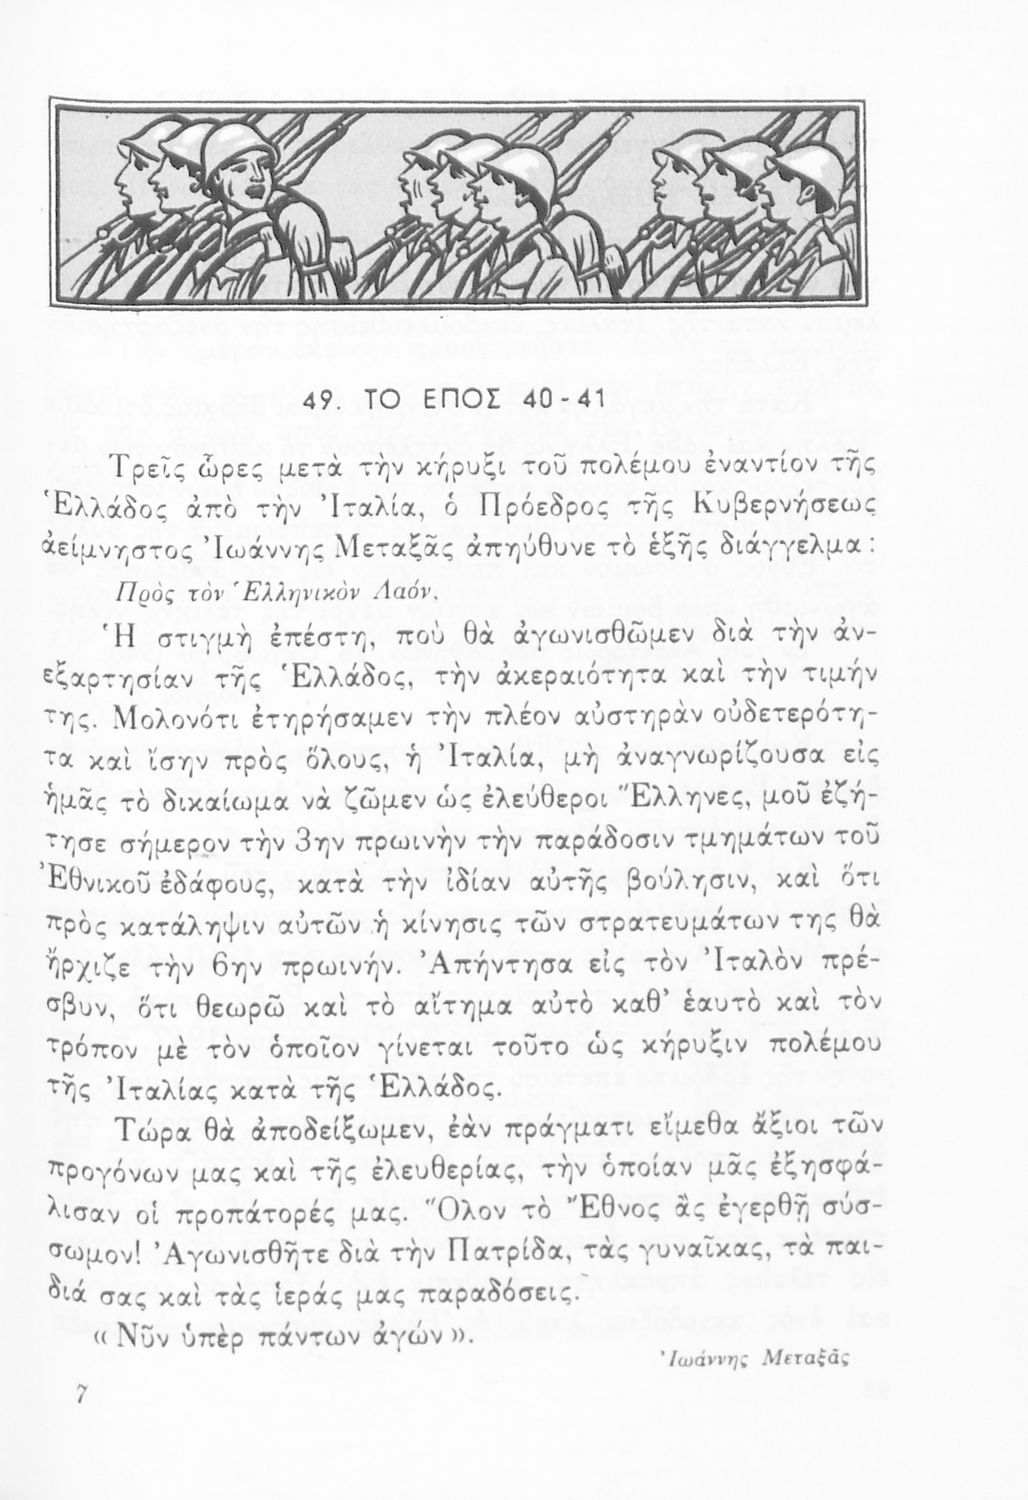 49. ΤΟ ΕΠΟΣ 40-41
Τρεῖς ὧρες μετὰ τὴν κήρυξι τοῦ πολέμου ἐναντίον τῆς
Ἑλλάδος ἀπὸ τὴν Ἰταλία, ὁ Πρόεδρος τῆς Κυβερνήσεως
ἀείμνηστος Ἰωάννης Μεταξᾶς ἀπηύθυνε τὸ ἑξῆς διάγγελμα :
Πρὸς τὸν Ἑλληνικὸν Λαόν,
Ἡ στιγμὴ ἐπέστη, ποὺ θὰ ἀγωνισθῶμεν διὰ τὴν ἀν-
εξαρτησίαν τῆς Ἑλλάδος, τὴν ἀκεραιότητα καὶ τὴν τιμήν
της. Μολονότι ἐτηρήσαμεν τὴν πλέον αὐστηρὰν οὐδετερότη-
τα καὶ ἴσην πρὸς ὅλους, ἡ Ἰταλία, μὴ ἀναγνωρίζουσα εἰς
ἡμᾶς τὸ δικαίωμα νὰ ζῶμεν ὡς ἐλεύθεροι Ἕλληνες, μοῦ ἐζή-
τησε σήμερον τὴν 3ην πρωινὴν τὴν παράδοσιν τμημάτων τοῦ
Ἐθνικοῦ ἐδάφους, κατὰ τὴν ἰδίαν αὐτῆς βούλησιν, καὶ ὅτι
πρὸς κατάληψιν αὐτῶν ἡ κίνησις τῶν στρατευμάτων της θὰ
ἤρχιζε τὴν 6ην πρωινήν. Ἀπήντησα εἰς τὸν Ἰταλὸν πρέ-
σβυν, ὅτι θεωρῶ καὶ τὸ αἴτημα αὐτὸ καθ' ἑαυτὸ καὶ τὸν
τρόπον μὲ τὸν ὁποῖον γίνεται τοῦτο ὡς κήρυξιν πολέμου
τῆς Ἰταλίας κατὰ τῆς Ἑλλάδος.
Τώρα θὰ ἀποδείξωμεν, ἐὰν πράγματι εἴμεθα ἄξιοι τῶν
προγόνων μας καὶ τῆς ἐλευθερίας, τὴν ὁποίαν μᾶς ἐξησφά-
λισαν οἱ προπάτορές μας. Ὅλον τὸ Ἔθνος ἂς ἐγερθῇ σύσ-
σωμον! Ἀγωνισθῆτε διὰ τὴν Πατρίδα, τὰς γυναῖκας, τὰ παι-
διά σας καὶ τὰς ἱεράς μας παραδόσεις.
« Νῦν ὑπὲρ πάντων ἀγών ».
Ἰωάννης Μεταξᾶς
7